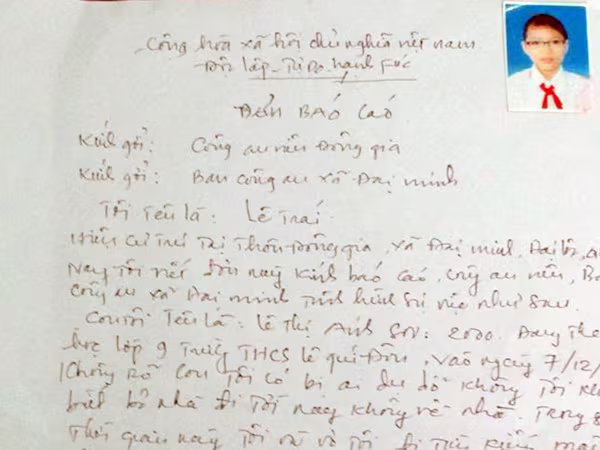 Cộng hoà xã hội chủ nghĩa việt nam
Độc lập - Tự Do - hạnh Fúc
ĐƠN BÁO CÁO
Kính gởi: Công an nên Đông gia
Kính gởi: Ban công an xã Đại minh
Tôi Tên là: Lê Trai
Hiện cư trú Tại Thôn Đông gia, xã Đại minh, Đại lộc,
Nay Tôi viết đơn này Kính báo cáo, công an nên,
công an xã Đại minh Tình hình sự việc như sau.
Con Tôi Tên là: Lê Thị Ánh Sn: 2000. Đang The
học lớp 9 Trường THCS lê quí Đôn, vào ngày 7/12/
Không rõ con Tôi có bị ai dụ dỗ không Tôi
biết bỏ nhà đi Tới nay không về nhà. Trong
Thời gian này Tôi và vợ Tôi đi Tìm kiếm